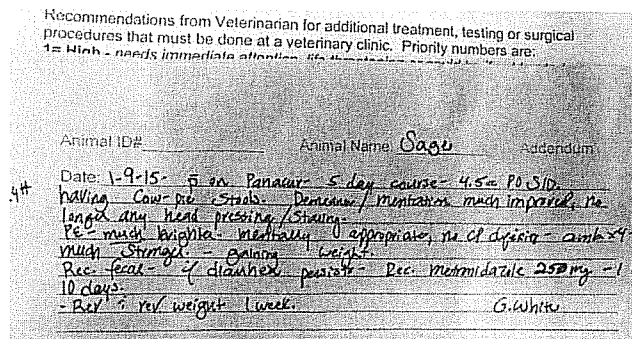 Recommendations from Veterinarian for additional treatment, testing or surgical
procedures that must be done at a veterinary clinic. Priority numbers are:
1= High - needs immediate attention,
Animal ID# Animal Name Sage Addendum
Date: 1-9-15- on Panacur- 5 day course- 4.5cc PO SID.
having Cow-pie stools. Demeanor/mentation much improved, no
longer any head pressing/staring.
PE- much brighter- mentally appropriate, no CP deficits- amb x4-
much stronger- gaining weight.
Rec. fecal- if diarrhea persists- Rec. 250mg -
10 days.
- Rev weight 1 week. G. White